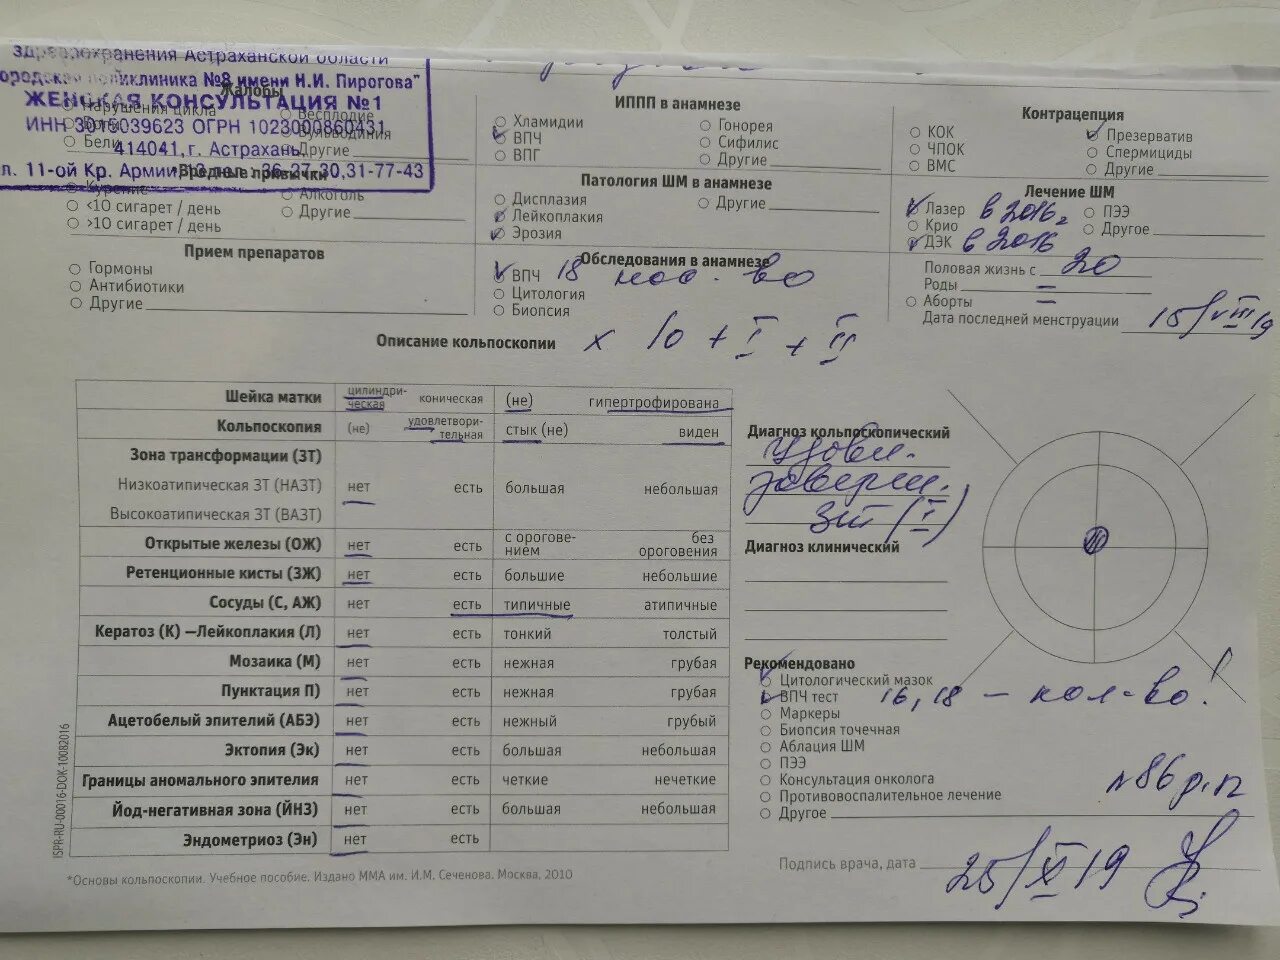 здравоохранения Астраханской области
поликлиника №8 имени Н.И. Пирогова"
ЖЕНСКАЯ КОНСУЛЬТАЦИЯ №1
ИНН 3015039623 ОГРН 1023000860431
414041, г. Астрахань,
11-ой Кр. Армии, 36-27-30, 31-77-43
Жалобы
Нарушения цикла
Бесплодие
Боли
Вульводиния
Бели
Другие
Вредные привычки
Курение
Алкоголь
<10 сигарет / день
Другие
>10 сигарет / день
Прием препаратов
Гормоны
Антибиотики
Другие
ИППП в анамнезе
Хламидии
Гонорея
ВПЧ
Сифилис
ВПГ
Другие
Патология ШМ в анамнезе
Дисплазия
Другие
Лейкоплакия
Эрозия
Обследования в анамнезе
ВПЧ 18
Цитология
Биопсия
Контрацепция
КОК
Презерватив
ЧПОК
Спермициды
ВМС
Другие
Лечение ШМ
Лазер в 2016г
ПЭЭ
Крио
Другое
ДЭК в 2016
Половая жизнь с 20
Роды –
Аборты –
Дата последней менструации 15/VIII 19
Описание кольпоскопии x 10 + I + II
Шейка матки цилиндри-ческая коническая (не) гипертрофирована
Кольпоскопия (не) удовлетвори-тельная стык (не) виден
Зона трансформации (ЗТ)
Низкоатипическая ЗТ (НАЗТ) нет есть большая небольшая
Высокоатипическая ЗТ (ВАЗТ)
Открытые железы (ОЖ) нет есть с орогове-нием без ороговения
Ретенционные кисты (ЗЖ) нет есть большие небольшие
Сосуды (С, АЖ) нет есть типичные атипичные
Кератоз (К) —Лейкоплакия (Л) нет есть тонкий толстый
Мозаика (М) нет есть нежная грубая
Пунктация П) нет есть нежная грубая
Ацетобелый эпителий (АБЭ) нет есть нежный грубый
Эктопия (Эк) нет есть большая небольшая
Границы аномального эпителия нет есть четкие нечеткие
Йод-негативная зона (ЙНЗ) нет есть большая небольшая
Эндометриоз (Эн) нет есть
*Основы кольпоскопии. Учебное пособие. Издано ММА им. И.М. Сеченова. Москва, 2010
ISPR-RU-00016-DOK-10082016
Диагноз кольпоскопический
Удовл.
заверш.
ЗТ (I)
Диагноз клинический
Рекомендовано
Цитологический мазок
ВПЧ тест 16, 18 – кол-во!
Маркеры
Биопсия точечная
Аблация ШМ
ПЭЭ
Консультация онколога
Противовоспалительное лечение
Другое
Подпись врача, дата